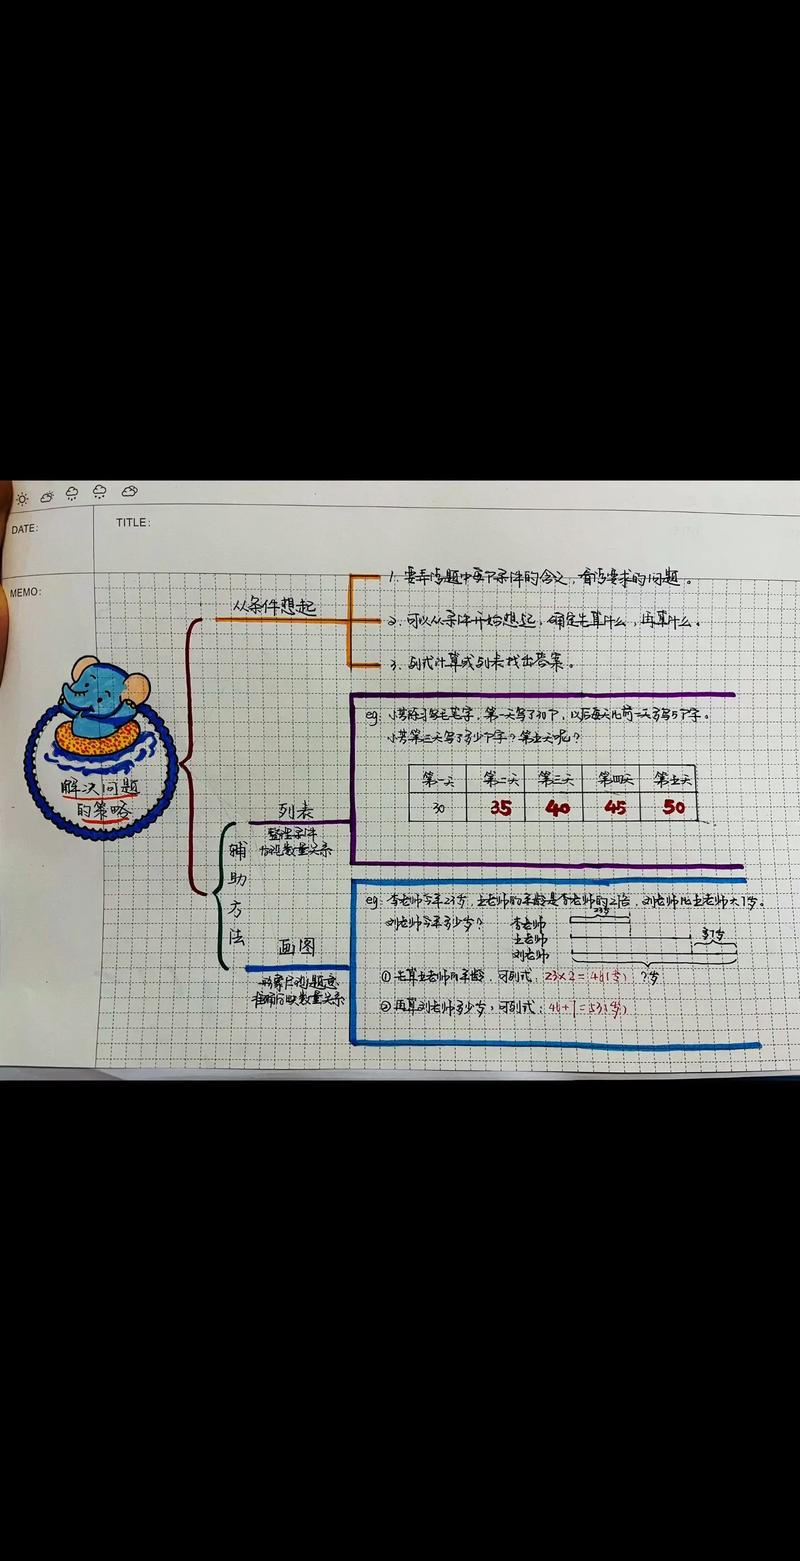 DATE:
TITLE:
MEMO:
解决问题
的策略
从条件想起
1. 要弄清题中每个条件的含义,看清要求的问题。
2. 可以从条件开始想起,确定先算什么,再算什么。
3. 列式计算或列表找出答案。
辅
助
方
法
列表
整理条件
数量关系
eg: 小芳练习写毛笔字,第一天写了30个,以后每天比前一天多写5个字。
小芳第三天写了多少个字?第五天呢?
第一天 第二天 第三天 第四天 第五天
30 35 40 45 50
画图
数量关系
eg: 李老师今年23岁,王老师的年龄是李老师的2倍,刘老师比王老师大7岁。
刘老师今年多少岁?
23岁
李老师
王老师
多7岁
刘老师
?岁
① 先算王老师的年龄,可列式:23×2=46(岁)
② 再算刘老师多少岁,可列式:46+7=53(岁)